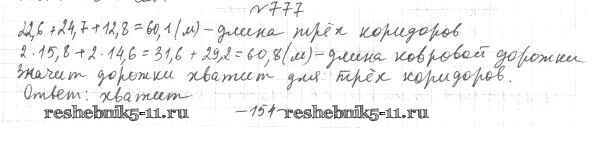 №777
22,6+24,7+12,8=60,1(м)-длина трёх коридоров
2·15,8+2·14,6=31,6+29,2=60,8(м)-длина ковровой дорожки
Значит дорожки хватит для трёх коридоров.
Ответ: хватит
-154-
reshebnik5-11.ru reshebnik5-11.ru